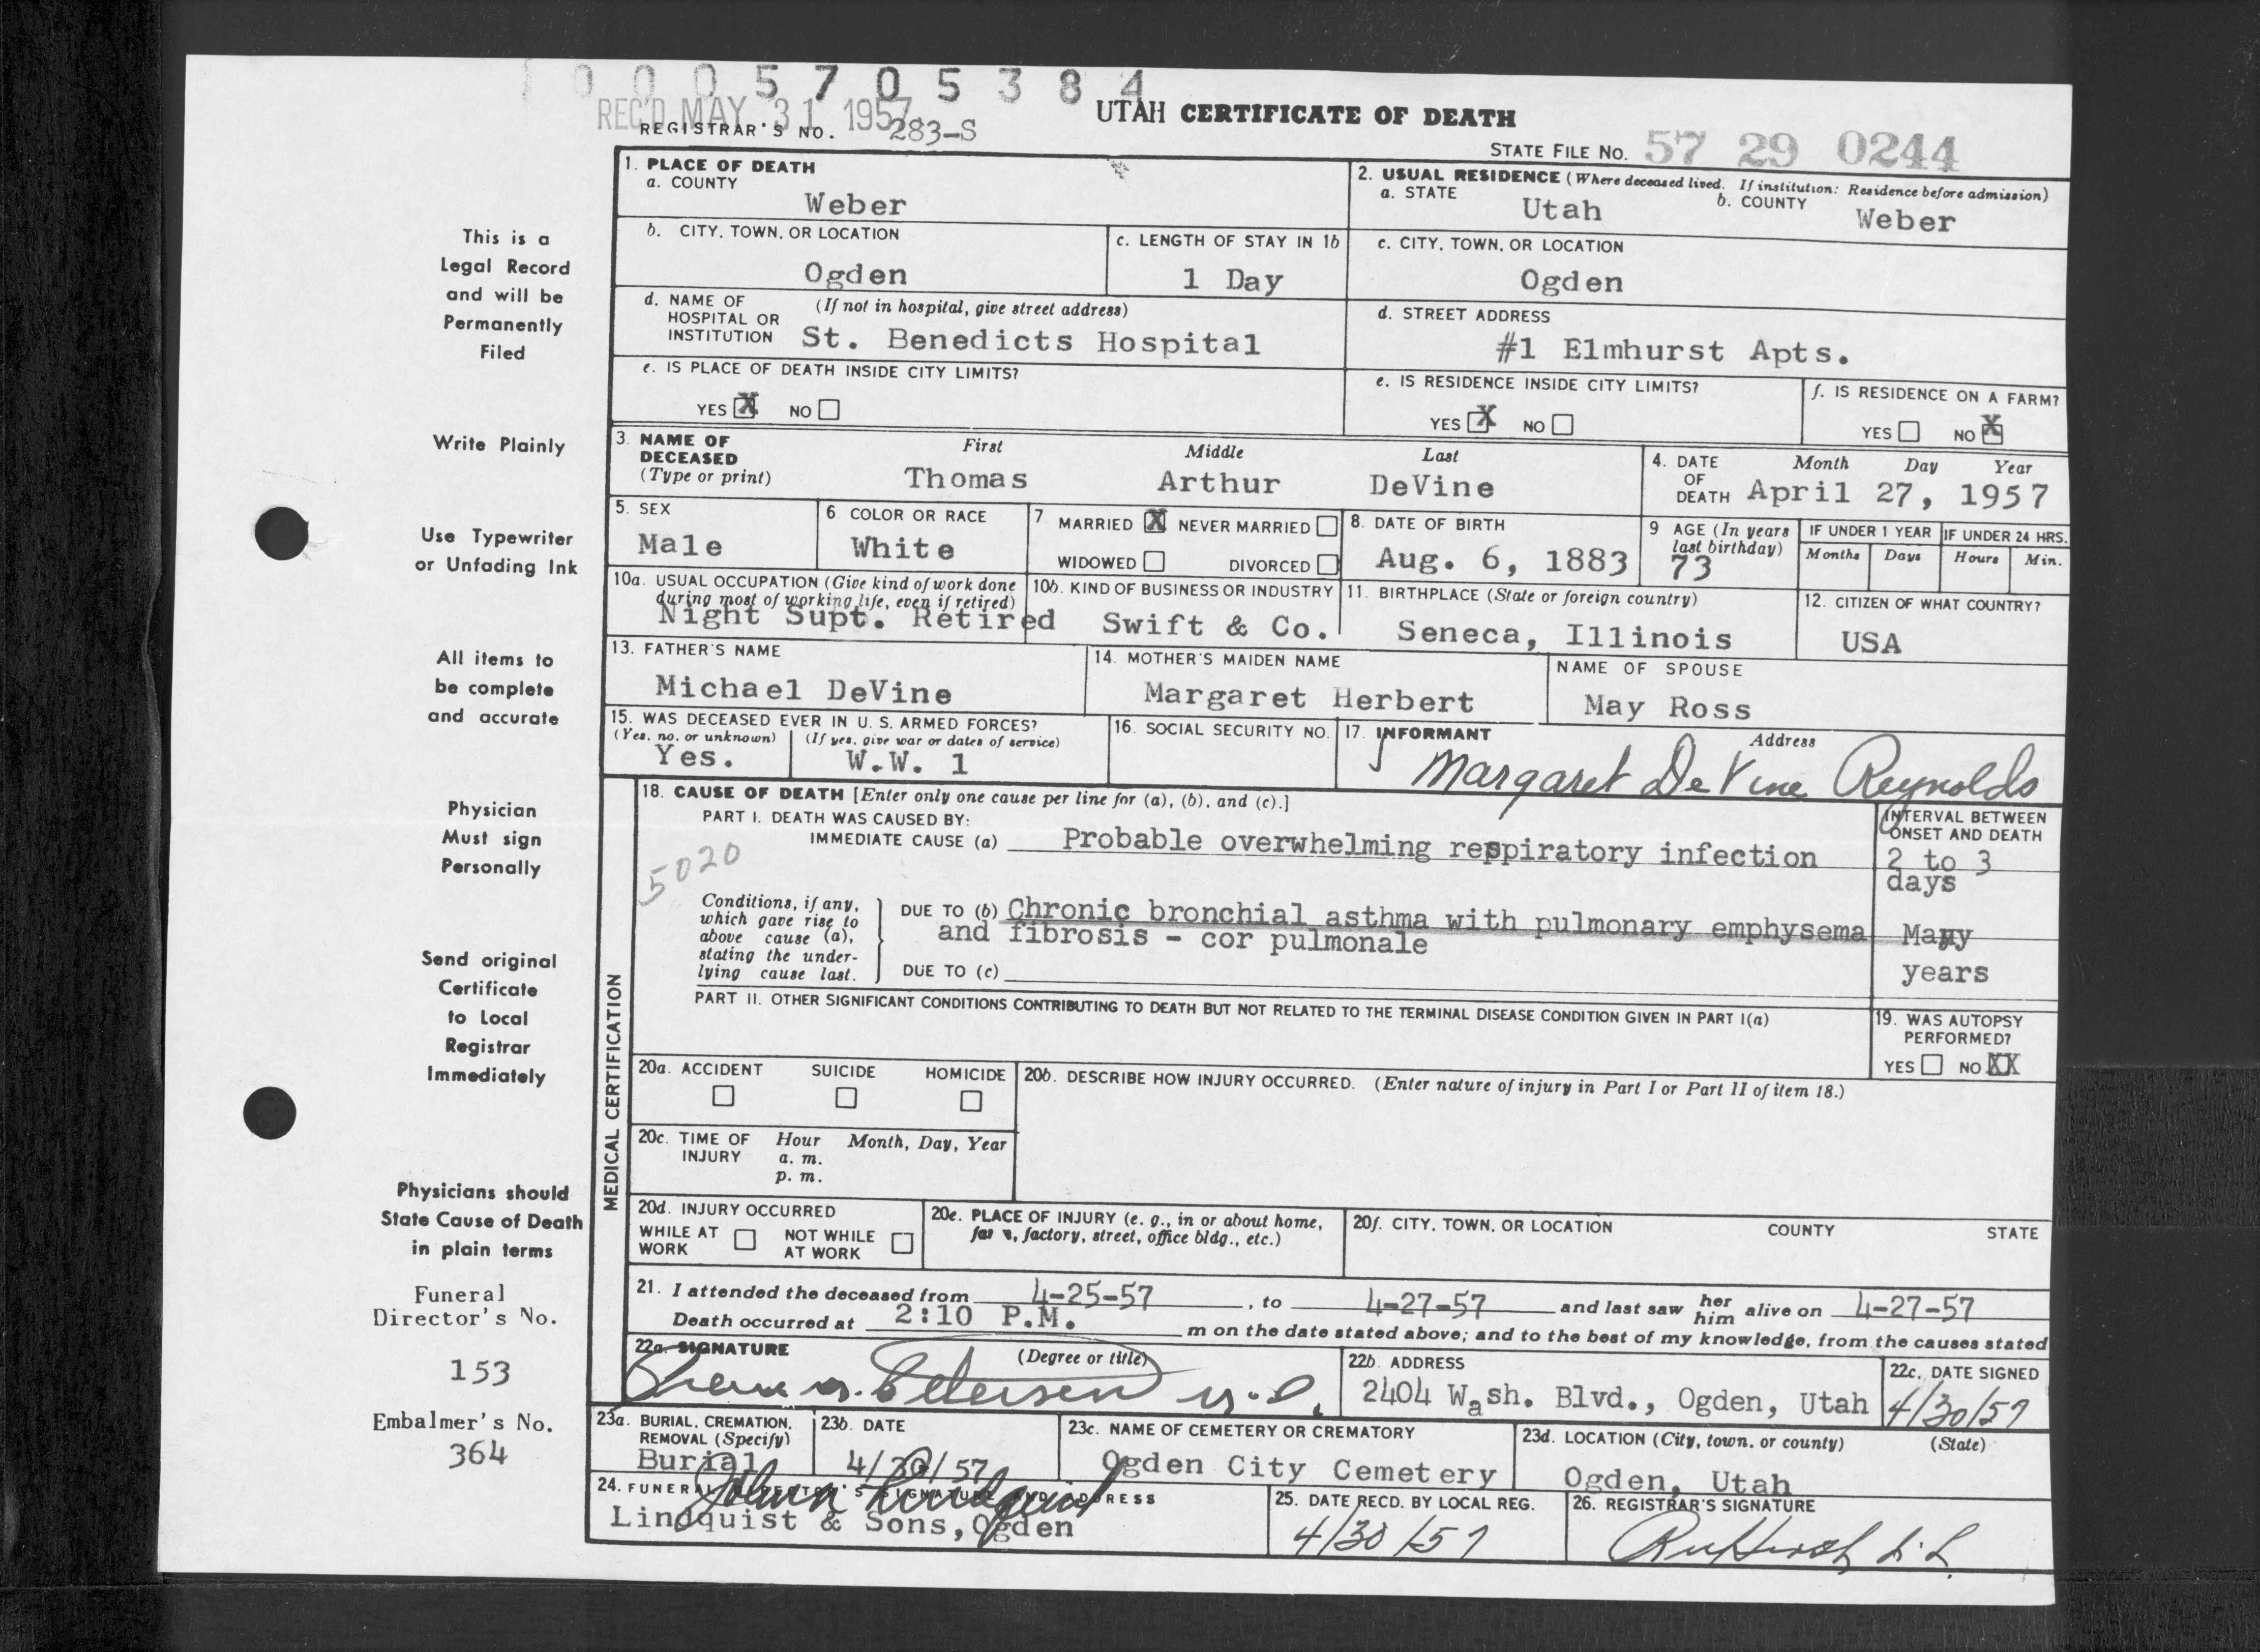 0005705384
REC'D MAY 31 1957
REGISTRAR'S NO. 283-S
UTAH CERTIFICATE OF DEATH
STATE FILE NO. 57 29 0244
1. PLACE OF DEATH
a. COUNTY
Weber
2. USUAL RESIDENCE (Where deceased lived. If institution: Residence before admission)
a. STATE Utah b. COUNTY Weber
b. CITY, TOWN, OR LOCATION
Ogden
c. LENGTH OF STAY IN 1b
1 Day
c. CITY, TOWN, OR LOCATION
Ogden
d. NAME OF HOSPITAL OR INSTITUTION (If not in hospital, give street address)
St. Benedicts Hospital
d. STREET ADDRESS
#1 Elmhurst Apts.
e. IS PLACE OF DEATH INSIDE CITY LIMITS?
YES X NO
e. IS RESIDENCE INSIDE CITY LIMITS?
YES X NO
f. IS RESIDENCE ON A FARM?
YES NO X
3. NAME OF DECEASED (Type or print)
First Middle Last
Thomas Arthur DeVine
4. DATE OF DEATH
Month Day Year
April 27, 1957
5. SEX
Male
6 COLOR OR RACE
White
7 MARRIED X NEVER MARRIED
WIDOWED DIVORCED
8. DATE OF BIRTH
Aug. 6, 1883
9 AGE (In years last birthday)
73
IF UNDER 1 YEAR
Months Days
IF UNDER 24 HRS.
Hours Min.
10a. USUAL OCCUPATION (Give kind of work done during most of working life, even if retired)
Night Supt. Retired
10b. KIND OF BUSINESS OR INDUSTRY
Swift & Co.
11. BIRTHPLACE (State or foreign country)
Seneca, Illinois
12. CITIZEN OF WHAT COUNTRY?
USA
13. FATHER'S NAME
Michael DeVine
14. MOTHER'S MAIDEN NAME
Margaret Herbert
NAME OF SPOUSE
May Ross
15. WAS DECEASED EVER IN U. S. ARMED FORCES?
(Yes, no, or unknown) (If yes, give war or dates of service)
Yes. W.W. 1
16. SOCIAL SECURITY NO.
17. INFORMANT Address
Margaret DeVine Reynolds
MEDICAL CERTIFICATION
18. CAUSE OF DEATH [Enter only one cause per line for (a), (b), and (c).]
PART I. DEATH WAS CAUSED BY:
IMMEDIATE CAUSE (a) Probable overwhelming respiratory infection
INTERVAL BETWEEN ONSET AND DEATH
2 to 3
days
5020
Conditions, if any, which gave rise to above cause (a), stating the underlying cause last.
DUE TO (b) Chronic bronchial asthma with pulmonary emphysema
and fibrosis - cor pulmonale
Many
years
DUE TO (c)
PART II. OTHER SIGNIFICANT CONDITIONS CONTRIBUTING TO DEATH BUT NOT RELATED TO THE TERMINAL DISEASE CONDITION GIVEN IN PART I(a)
19. WAS AUTOPSY PERFORMED?
YES NO XX
20a. ACCIDENT SUICIDE HOMICIDE
20b. DESCRIBE HOW INJURY OCCURRED. (Enter nature of injury in Part I or Part II of item 18.)
20c. TIME OF INJURY Hour Month, Day, Year
a. m.
p. m.
20d. INJURY OCCURRED
WHILE AT WORK NOT WHILE AT WORK
20e. PLACE OF INJURY (e. g., in or about home, farm, factory, street, office bldg., etc.)
20f. CITY, TOWN, OR LOCATION COUNTY STATE
21. I attended the deceased from 4-25-57, to 4-27-57 and last saw her him alive on 4-27-57
Death occurred at 2:10 P.M. m on the date stated above; and to the best of my knowledge, from the causes stated
22a. SIGNATURE (Degree or title)
Petersen M.D.
22b. ADDRESS
2404 Wash. Blvd., Ogden, Utah
22c. DATE SIGNED
4/30/57
23a. BURIAL, CREMATION, REMOVAL (Specify)
Burial
23b. DATE
4/30/57
23c. NAME OF CEMETERY OR CREMATORY
Ogden City Cemetery
23d. LOCATION (City, town, or county) (State)
Ogden, Utah
24. FUNERAL DIRECTOR'S SIGNATURE AND ADDRESS
Lindquist
Lindquist & Sons, Ogden
25. DATE RECD. BY LOCAL REG.
4/30/57
26. REGISTRAR'S SIGNATURE
This is a
Legal Record
and will be
Permanently
Filed
Write Plainly
Use Typewriter
or Unfading Ink
All items to
be complete
and accurate
Physician
Must sign
Personally
Send original
Certificate
to Local
Registrar
Immediately
Physicians should
State Cause of Death
in plain terms
Funeral
Director's No.
153
Embalmer's No.
364